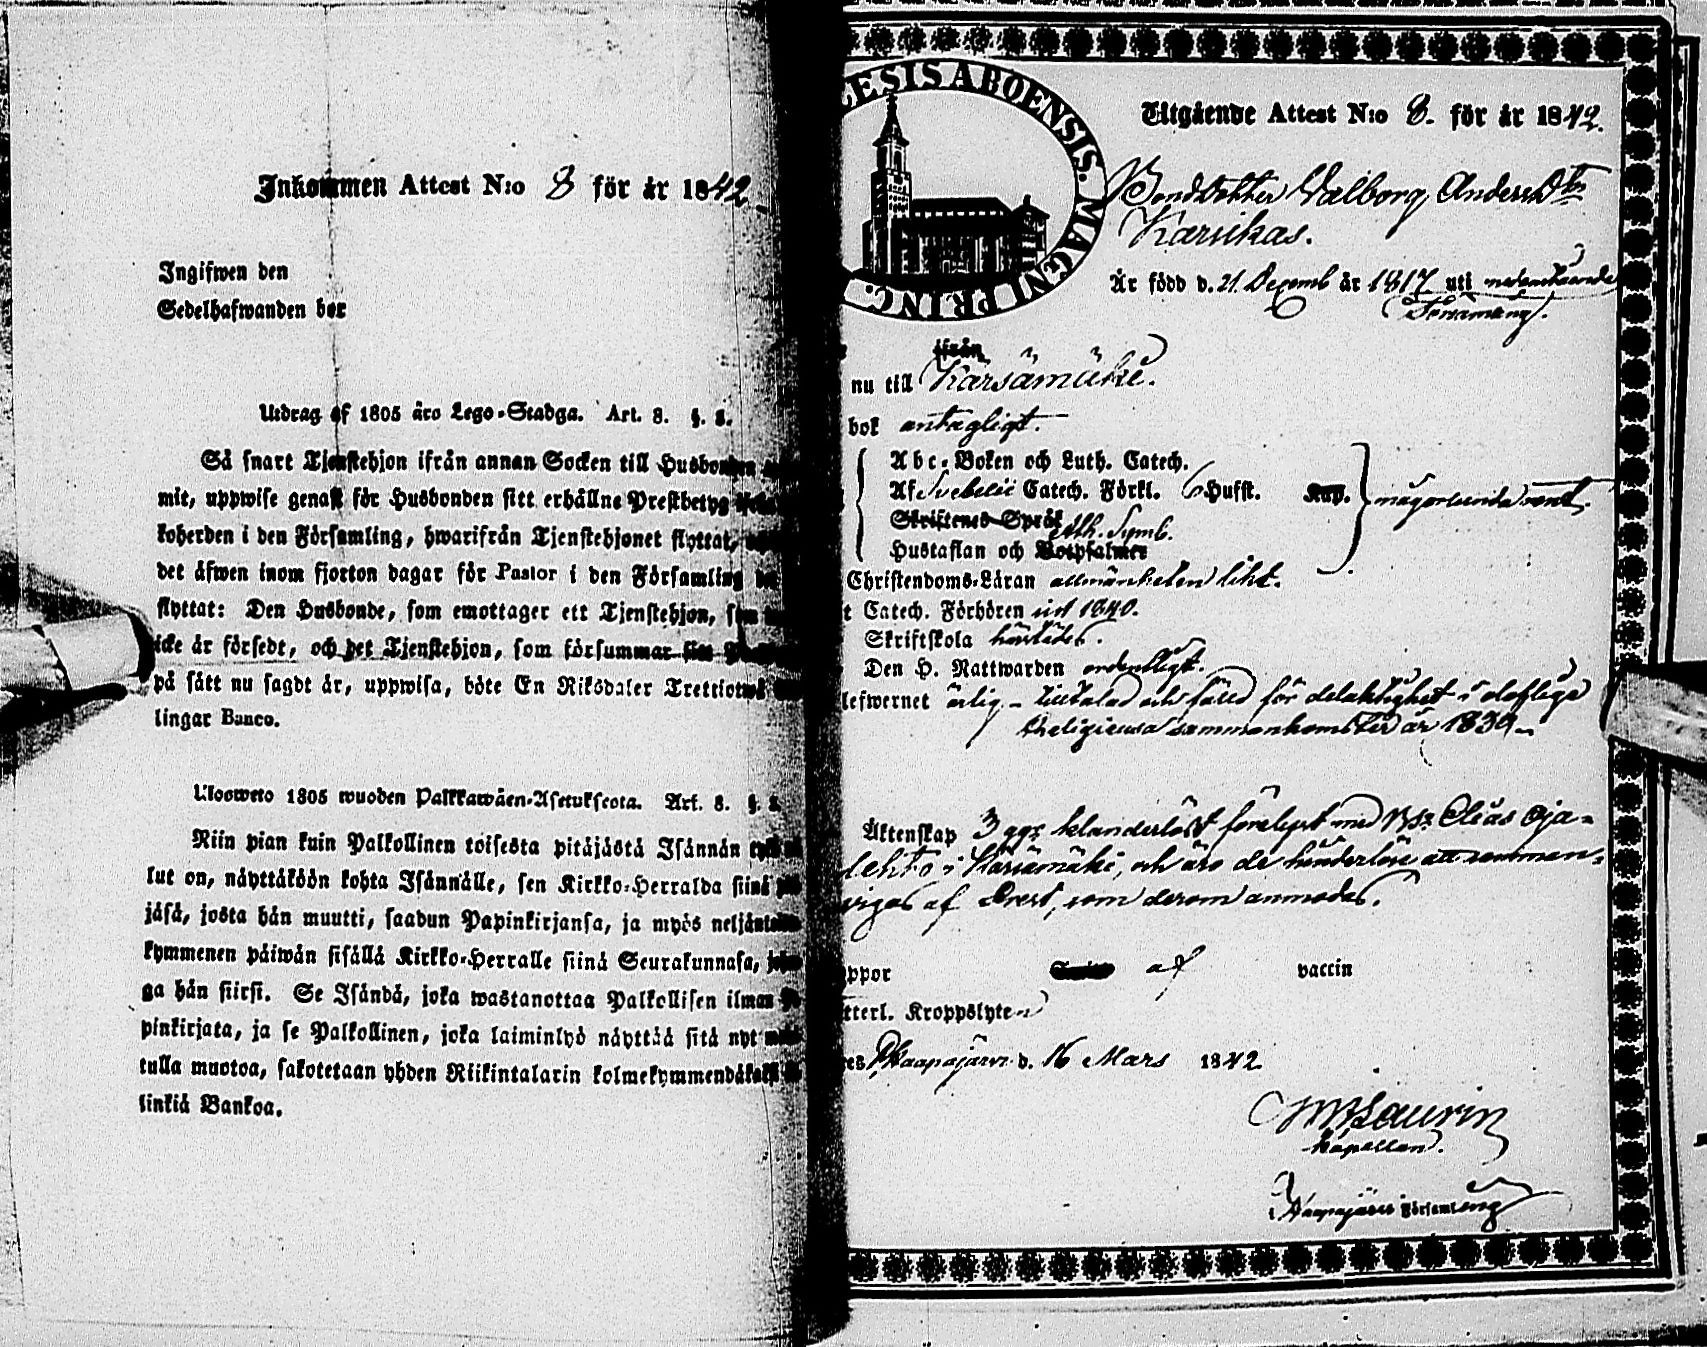 Inkommen Attest N:o 8 för år 1842.
Ingifwen den
Sedelhafwanden bor
Utdrag af 1805 års Lego-Stadga. Art. 8. §. 8.
Så snart Tjenstehjon ifrån annan Socken till Husbonden
mit, uppwise genast för Husbonden sitt erhållne Prestbetyg
koherden i den Församling, hwarifrån Tjenstehjonet flyttat,
det äfwen inom fjorton dagar för Pastor i den Församling
flyttat: Den Husbonde, som emottager ett Tjenstehjon, som
icke är försedt, och det Tjenstehjon, som försummar sitt
på sätt nu sagdt är, uppwisa, böte En Riksdaler Trettiotwå
lingar Banco.
Ulosweto 1805 wuoden Palkkawäen-Asetuksesta. Art. 8. §. 8.
Niin pian kuin Palkollinen toisesta pitäjästä Isännän
lut on, näyttäköön kohta Isännälle, sen Kirkko-Herralda siinä
jäsä, josta hän muutti, saadun Papinkirjansa, ja myös neljäntoista
kymmenen päiwän sisällä Kirkko-Herralle siinä Seurakunnasa,
ga hän siirsi. Se Isändä, joka wastanottaa Palkollisen ilman
pinkirjata, ja se Palkollinen, joka laiminlyö näyttää sitä nyt
tulla muotoa, sakotetaan yhden Riikintalarin kolmekymmendäkaksi
linkiä Bankoa.
LESIS ABOENSIS. MAGNI PRINC.
Utgående Attest N:o 8. för år 1842.
Bonddotter Walborg Andersdtr
Karukas.
Är född d. 21 Decemb år 1817 uti nedanstående
Församling.
ifrån
nu till Kärsämäki.
bok antagligt.
Abc-Boken och Luth. Catech.
Af Svebelii Catech. Förkl. Hufst. Kap. någorlunda
Skriftenes Språk Ath. Symb.
Hustaflan och Botpsalmer
Christendoms-Läran allmänheten likt.
t Catech. Förhören 1840.
Skriftskola
Den H. Nattwarden ordentligt.
lefwernet ärlig - tilltalad och fälld för delaktighet i olaflige
Religieusa sammankomster år 1839.
Äktenskap 3 ggr klanderlöst förelyst med Bs: Elias Oja-
lehto i Kärsämäki, och äro de hinderlöse att samman-
vigas af Prest, som derom anmodas.
ppor af vaccin
tterl. Kroppslyten
es Haapajärvi d. 16 Mars 1842
Laurin
Kapellan.
Haapajärvi Församling